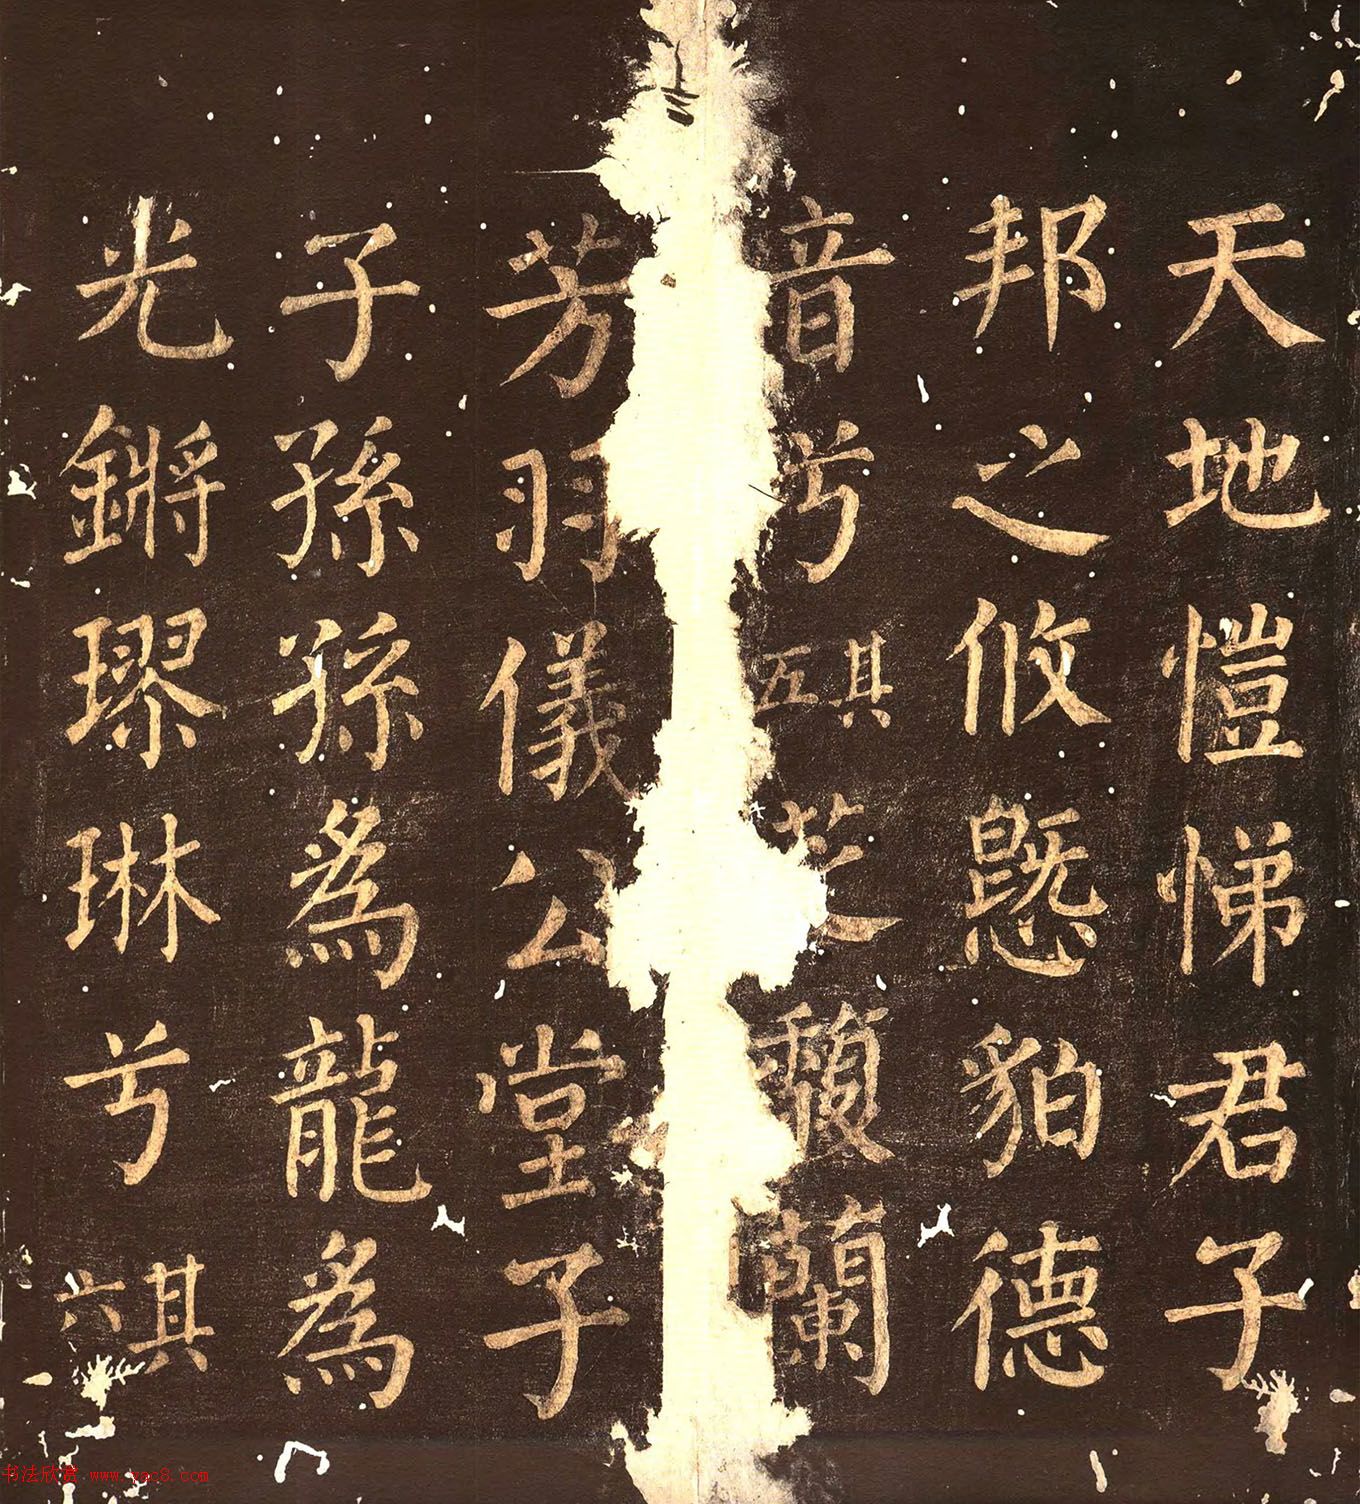 天地愷悌君子
邦之攸貊德
音兮其五芝馥蘭
芳羽儀公堂子
子孫孫爲龍爲
光鏘璆琳兮其六
书法欣赏 www.yac8.com